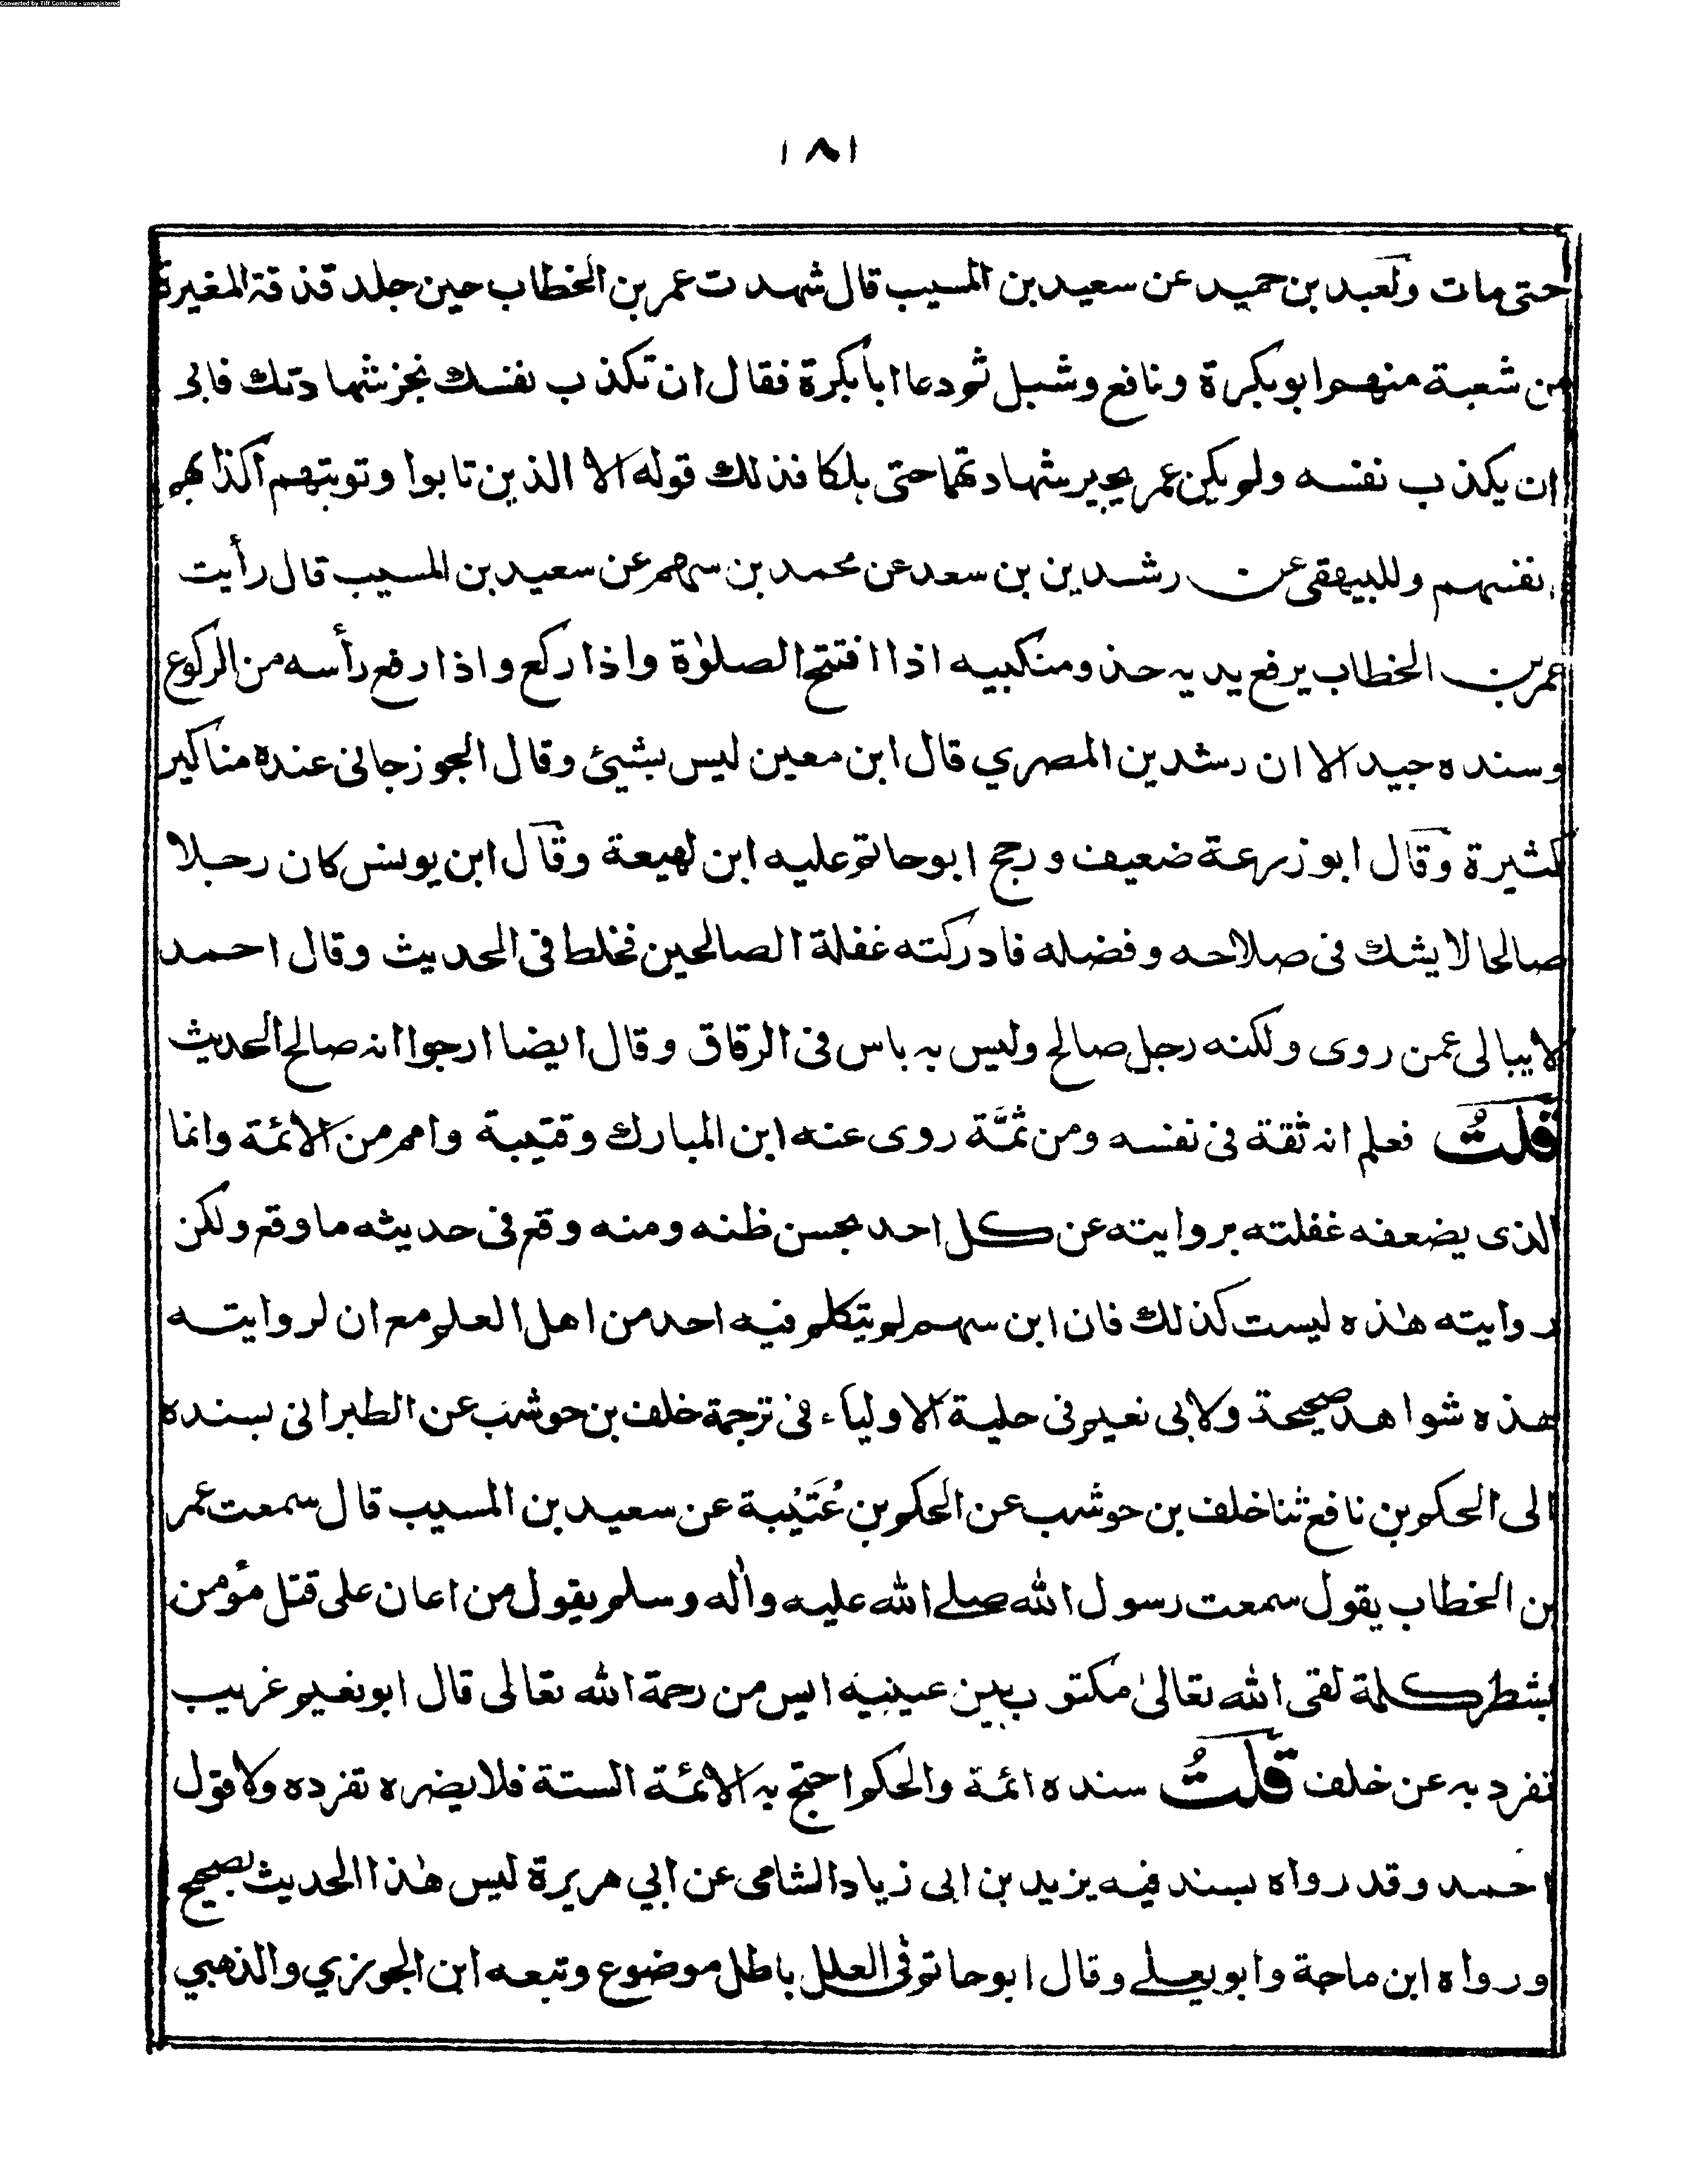 Converted by Tiff Combine - unregistered
١٨١
حتى مات ولعبد بن حميد عن سعيد بن المسيب قال شهدت عمر بن الخطاب حين جلد قذفة المغيرة
بن شعبة منهم ابو بكرة ونافع وشبل ثم دعا ابا بكرة فقال ان تكذب نفسك نجز شهادتك فابى
ان يكذب نفسه ولم يكن عمر يجيز شهادتهما حتى هلكا فذلك قوله الا الذين تابوا وتوبتهم اكذابهم
انفسهم وللبيهقى عن رشدين بن سعد عن محمد بن سهم عن سعيد بن المسيب قال رأيت
عمر بن الخطاب يرفع يديه حذو منكبيه اذا افتتح الصلوٰة واذا ركع واذا رفع رأسه من الركوع
وسنده جيد الا ان رشدين المصري قال ابن معين ليس بشيئ وقال الجوزجانى عنده مناكير
كثيرة وقال ابو زرعة ضعيف ورجح ابو حاتم عليه ابن لهيعة وقال ابن يونس كان رجلا
صالحا لا يشك فى صلاحه وفضله فادركته غفلة الصالحين فخلط فى الحديث وقال احمد
لا يبالى عمن روى ولكنه رجل صالح وليس به باس فى الرقاق وقال ايضا ارجوا انه صالح الحديث
قلتُ فعلم انه ثقة فى نفسه ومن ثمَّة روى عنه ابن المبارك وقتيبة وامم من الائمة وانما
الذى يضعفه غفلته بروايته عن كل احد بحسن ظنه ومنه وقع فى حديثه ما وقع ولكن
روايته هٰذه ليست كذلك فان ابن سهم لم يتكلم فيه احد من اهل العلم مع ان لروايته
هذه شواهد صحيحة ولابى نعيم فى حلية الاولياء فى ترجمة خلف بن حوشب عن الطبرانى بسنده
الى الحكم بن نافع ثنا خلف بن حوشب عن الحكم بن عُتَيْبة عن سعيد بن المسيب قال سمعت عمر
بن الخطاب يقول سمعت رسول الله صلے الله عليه واٰله وسلم يقول من اعان على قتل مؤمن
بشطر كلمة لقى الله تعالىٰ مكتوب بين عينيه ايس من رحمة الله تعالى قال ابو نعيم غريب
تفرد به عن خلف قلتُ سنده ائمة والحكم احتج به الائمة الستة فلا يضره تفرده ولا قول
احمد وقد رواه بسند فيه يزيد بن ابى زياد الشامى عن ابي هريرة ليس هٰذا الحديث بصحيح
ورواه ابن ماجة وابو يعلے وقال ابو حاتم فى العلل باطل موضوع وتبعه ابن الجوزي والذهبي